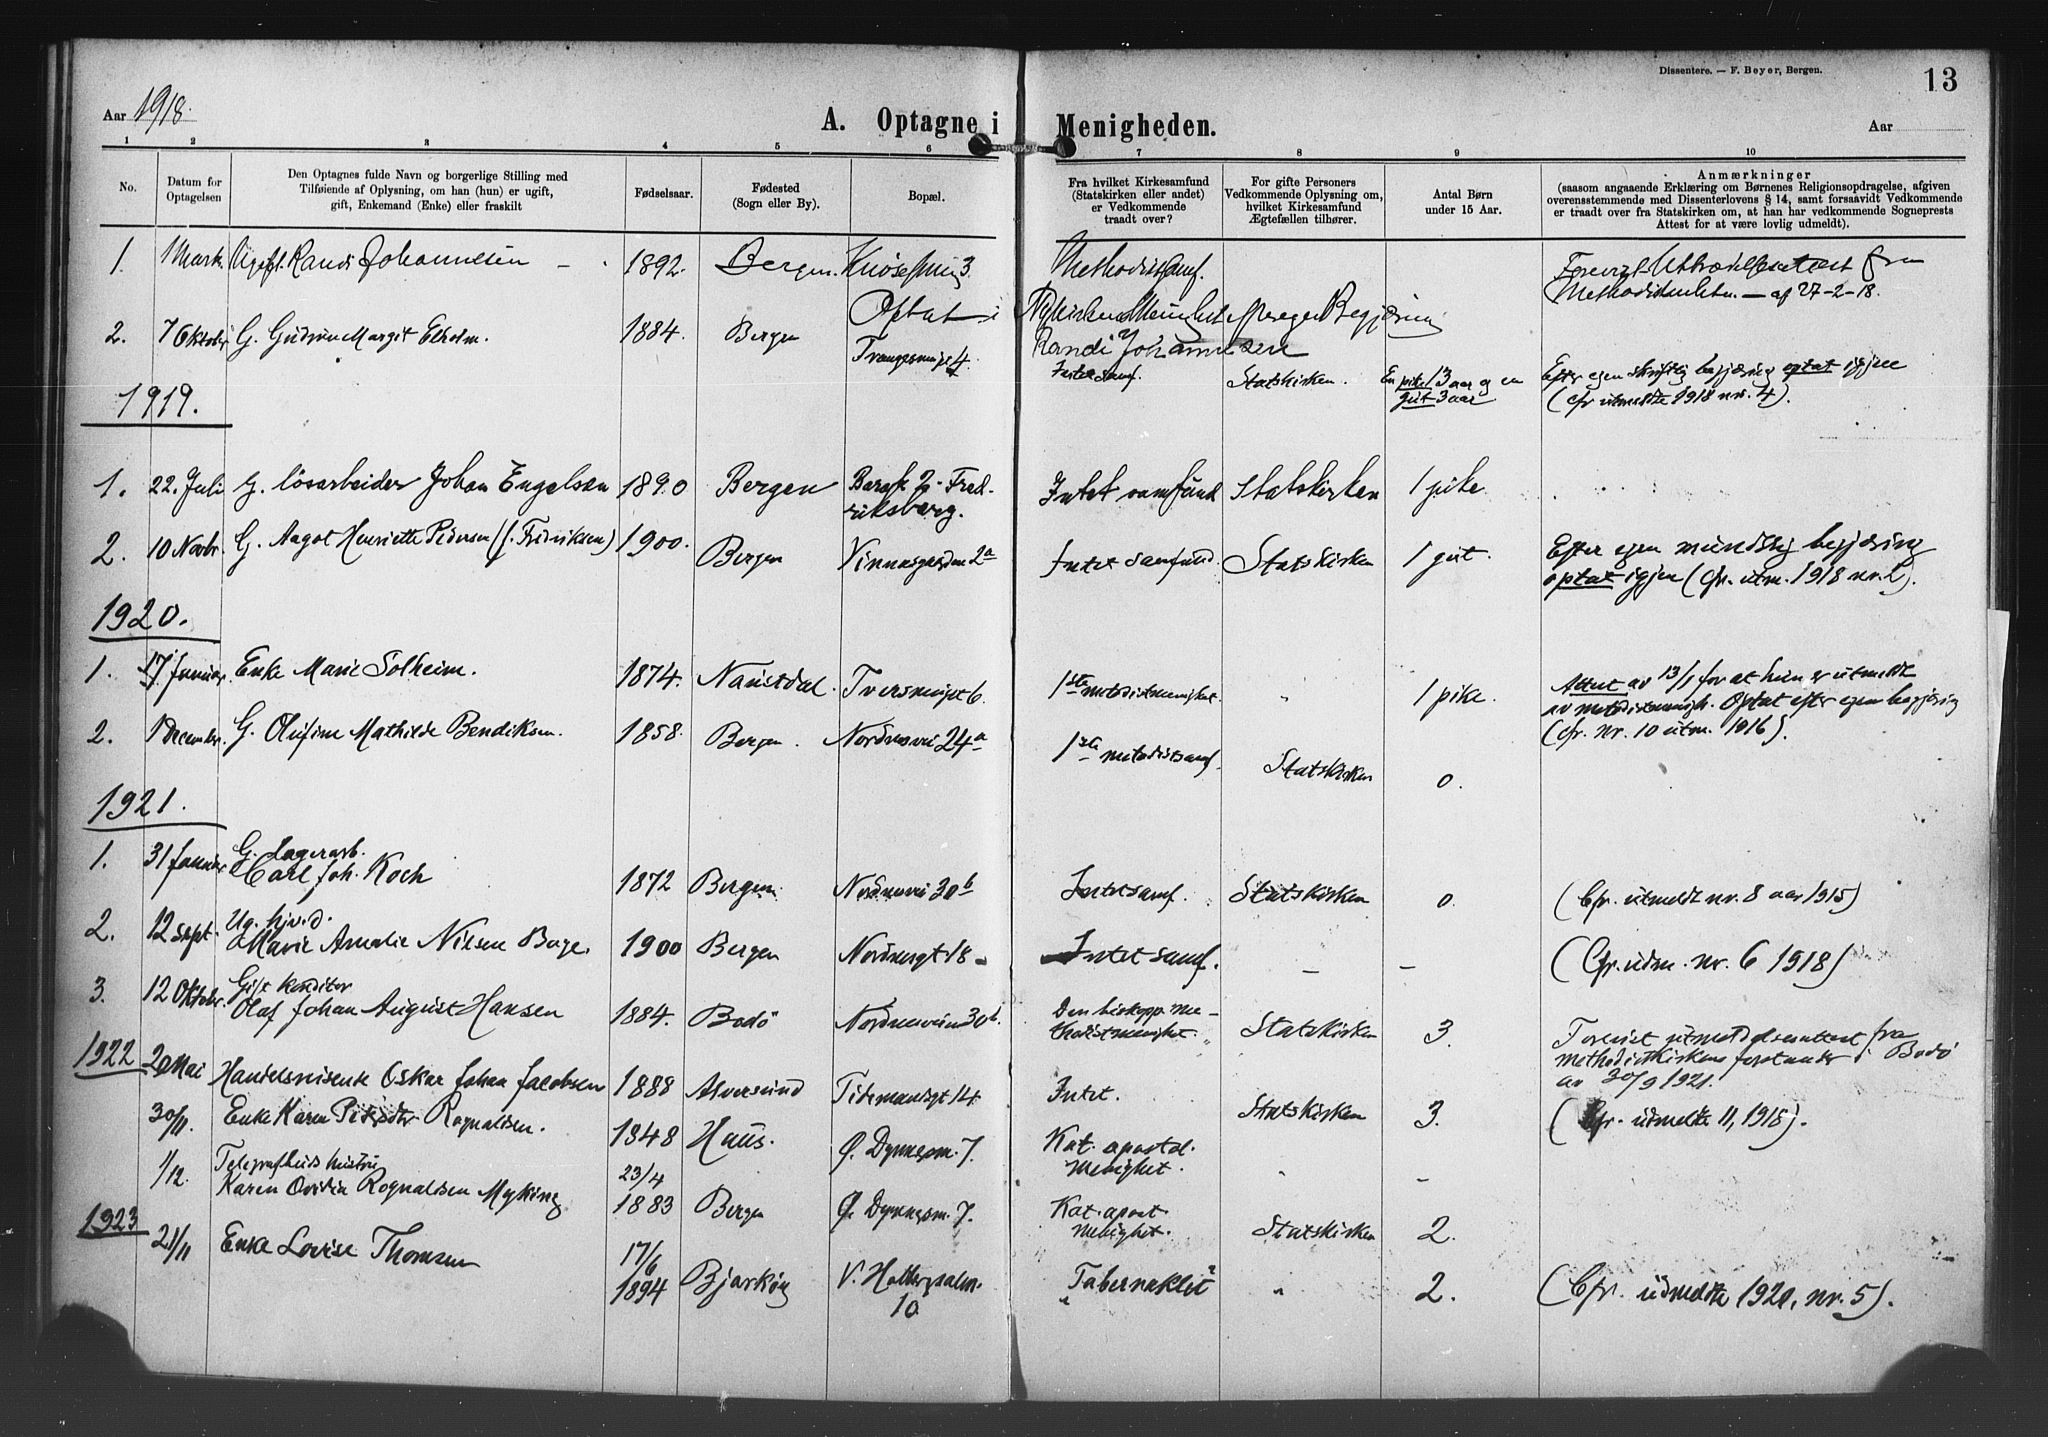 Dissentere. — F. Beyer, Bergen.
13
Aar 1918.
A. Optagne i Menigheden.
Aar
1 2 3 4 5 6 7 8 9 10
No.
Datum for
Optagelsen
Den Optagnes fulde Navn og borgerlige Stilling med
Tilføiende af Oplysning, om han (hun) er ugift,
gift, Enkemand (Enke) eller fraskilt
Fødselsaar.
Fødested
(Sogn eller By).
Bopæl.
Fra hvilket Kirkesamfund
(Statskirken eller andet)
er Vedkommende
traadt over?
For gifte Personers
Vedkommende Oplysning om,
hvilket Kirkesamfund
Ægtefællen tilhører.
Antal Børn
under 15 Aar.
Anmærkninger
(saasom angaaende Erklæring om Børnenes Religionsopdragelse, afgiven
overensstemmende med Dissenterlovens § 14, samt forsaavidt Vedkommende
er traadt over fra Statskirken om, at han har vedkommende Sogneprests
Attest for at være lovlig udmeldt).
1. 1 Mark. Randi Johannesen 1892. Bergen. 3. Methodistsamf.
fra
Methodistkirken — af 27-2-18.
Optat i Nykirkens Menighet Begjæring
Randi Johannesen
2. 7 Oktober G. Gudrun Margit Elholm. 1884. Bergen 4. Intet samf. Statskirken. En pike 13 aar og en
gut 3 aar
Efter egen skriftlig begjæring optat igjen
(cfr utmeldte 1918 nr. 4).
1919.
1. 22. Juli G. løsarbeider Johan Engelsen 1890 Bergen Barak 2 - Fred-
riksberg.
Intet samfund Statskirken 1 pike.
2. 10 Novbr. G. Aagot Henriette Pedersen (f. Fredriksen) 1900. Bergen Vinnesgarden 2a Intet samfund. Statskirken 1 gut.
Efter egen mundtlig begjæring
optat igjen (cfr. utm. 1918 nr. 2).
1920.
1. 17 Januar Enke Marie Solheim. 1874. Naustdal. 6. 1ste metodistmenighet. " 1 pike.
Attest av 13/1 for at hun er utmeldt
av metodistmenigh. Optat efter egen begjæring
(cfr. nr. 10 utm. 1916).
2. 1 December G. Olufine Mathilde Bendiksen. 1858. Bergen. Nordnesvei 24a 1ste metodistsamf. Statskirken 0.
1921.
1. 31 Januar G. lagerarb.
Carl Joh. Koch 1872 Bergen Nordnesvei 30b Intet samf. Statskirken 0. (Cfr. utmeldt nr. 8 aar 1915)
2. 12 Sept. Ug. hjv.d.
Marie Amalie Nilsen Bage. 1900 Bergen Nordnesgt 18 - Intet samf. — — (Cfr. udm. nr. 6 1918)
3. 12 Oktobr. Gift Konditor
Olaf Johan August Hansen 1884. Bodö Nordnesveien 30b. Den biskopp. me-
thodistmenighet. Statskirken 3.
Forevist utmeldelsesattest fra
methodistkirkens forstander i Bodö
av 30/9 1921.
1922
20 Mai Handelsreisende Oskar Johan Jacobsen 1888 Alversund Tidemandsgt 14 Intet. Statskirken 3. (Cfr. utmeldte 11, 1918).
30/11. Enke Karen Rognaldsen. 1848 Haus. Ø. Dynnesm. 7. Kat. apostol.
menighet. " -
1/12. Telegrafbuds hustru
Karen Ovidia Rognaldsen Myking 23/4
1883 Bergen Ø. Dynnesm. 7. Kat. apost.
menighet. Statskirken 2.
1923
21/11 Enke Lovise Thomsen 17/6
1894 Bjarkøy V. Holbergsalm.
10
"Tabernaklet" " 2. (Cfr. udmeldte 1920, nr. 5).